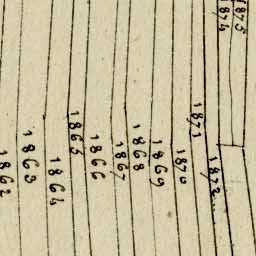 1862
1863
1864
1865
1866
1867
1868
1869
1870
1871
1872
1874
1875